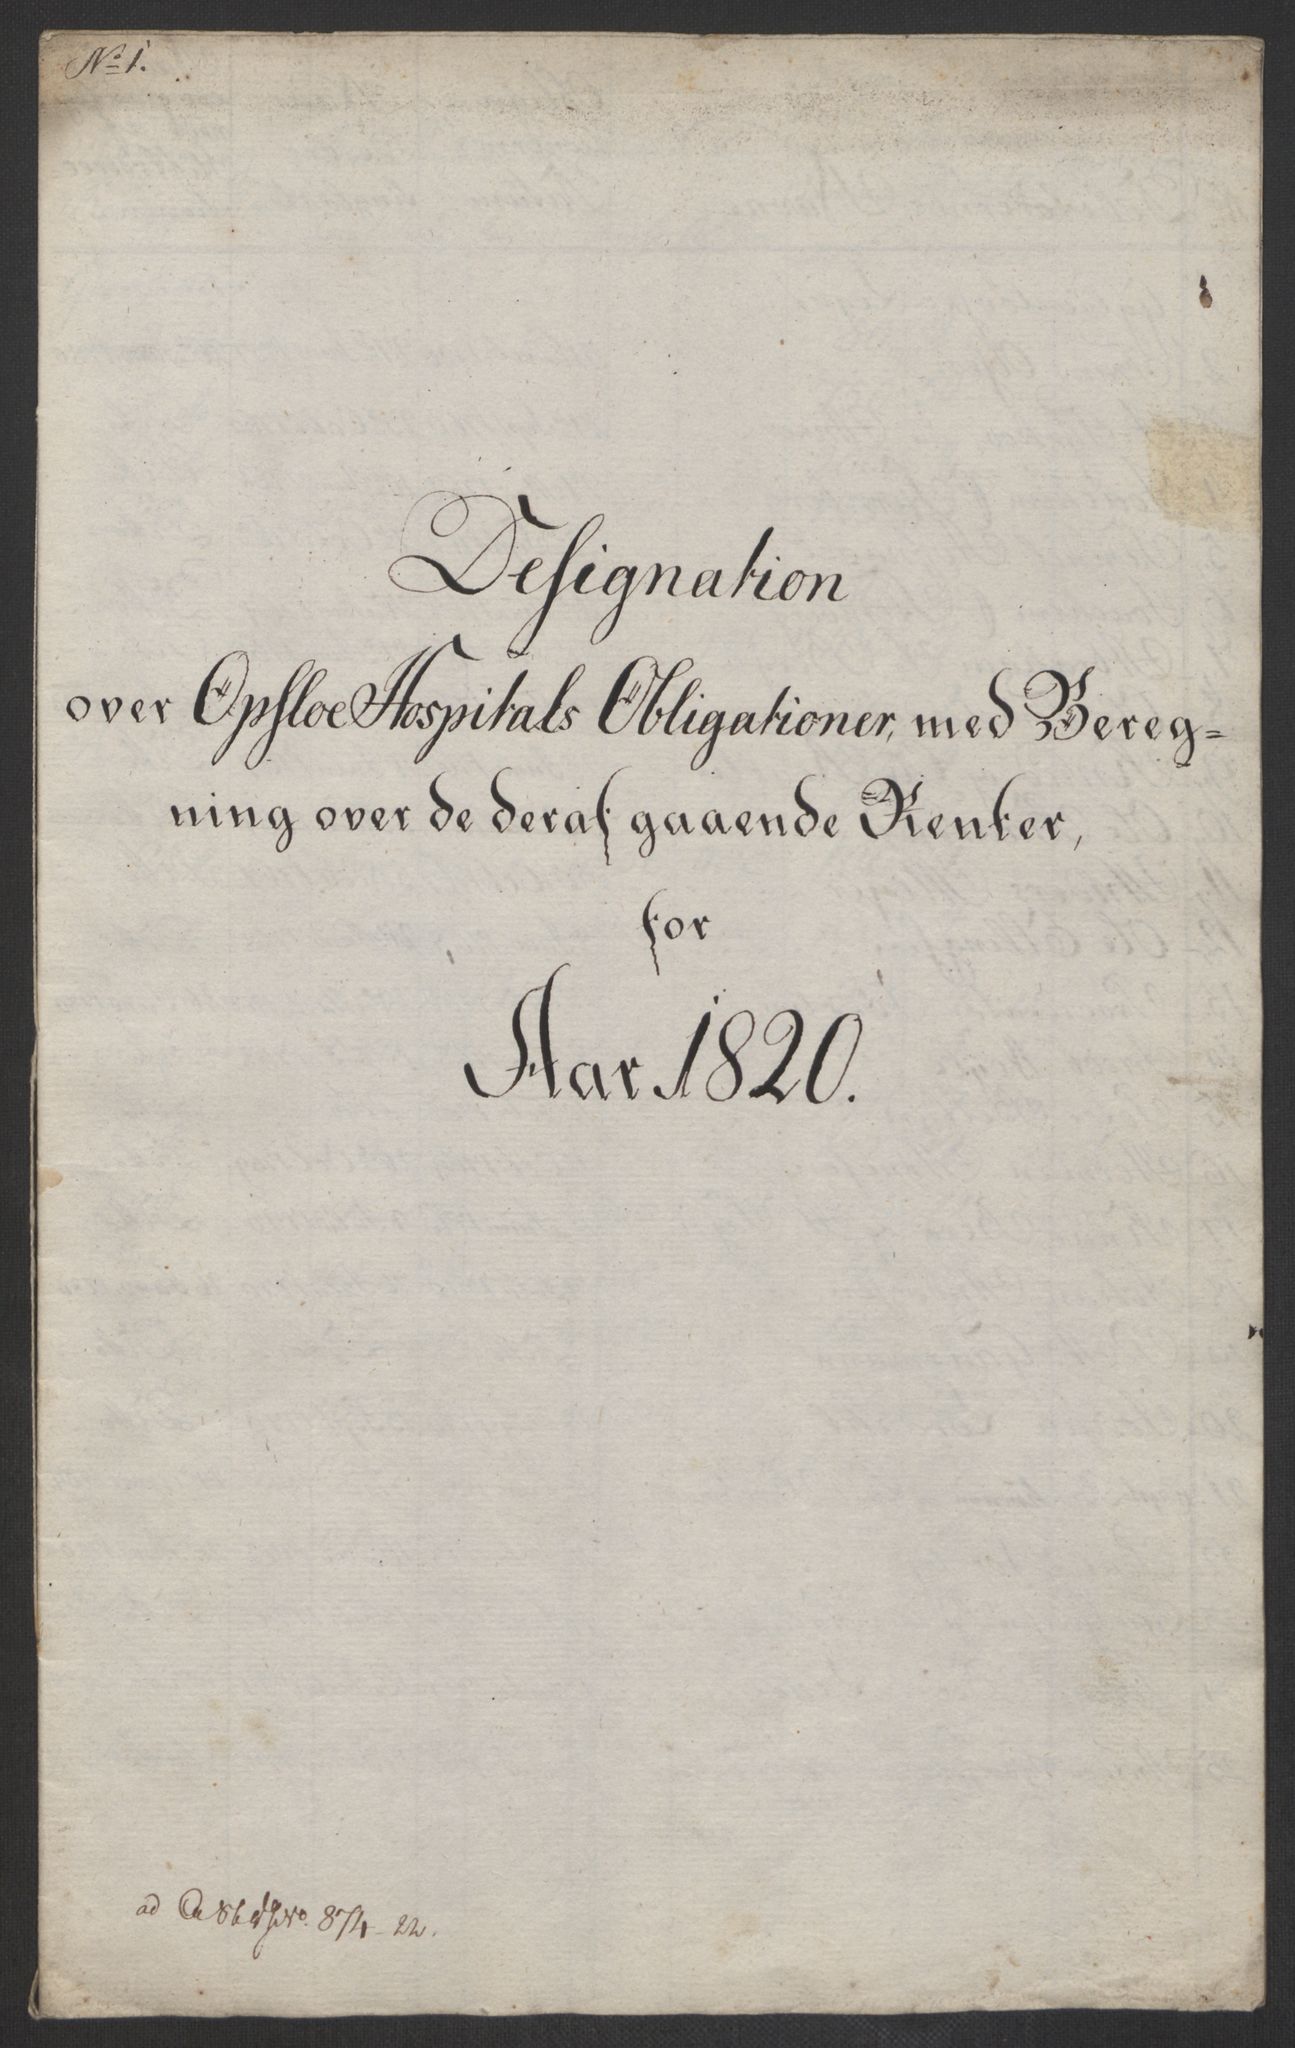 No 1.
Designation
over Opsloe Hospitals Obligationer, med Bereg=
ning over de deraf gaaende Renter,
for
Aar 1820.
ad 874 22.